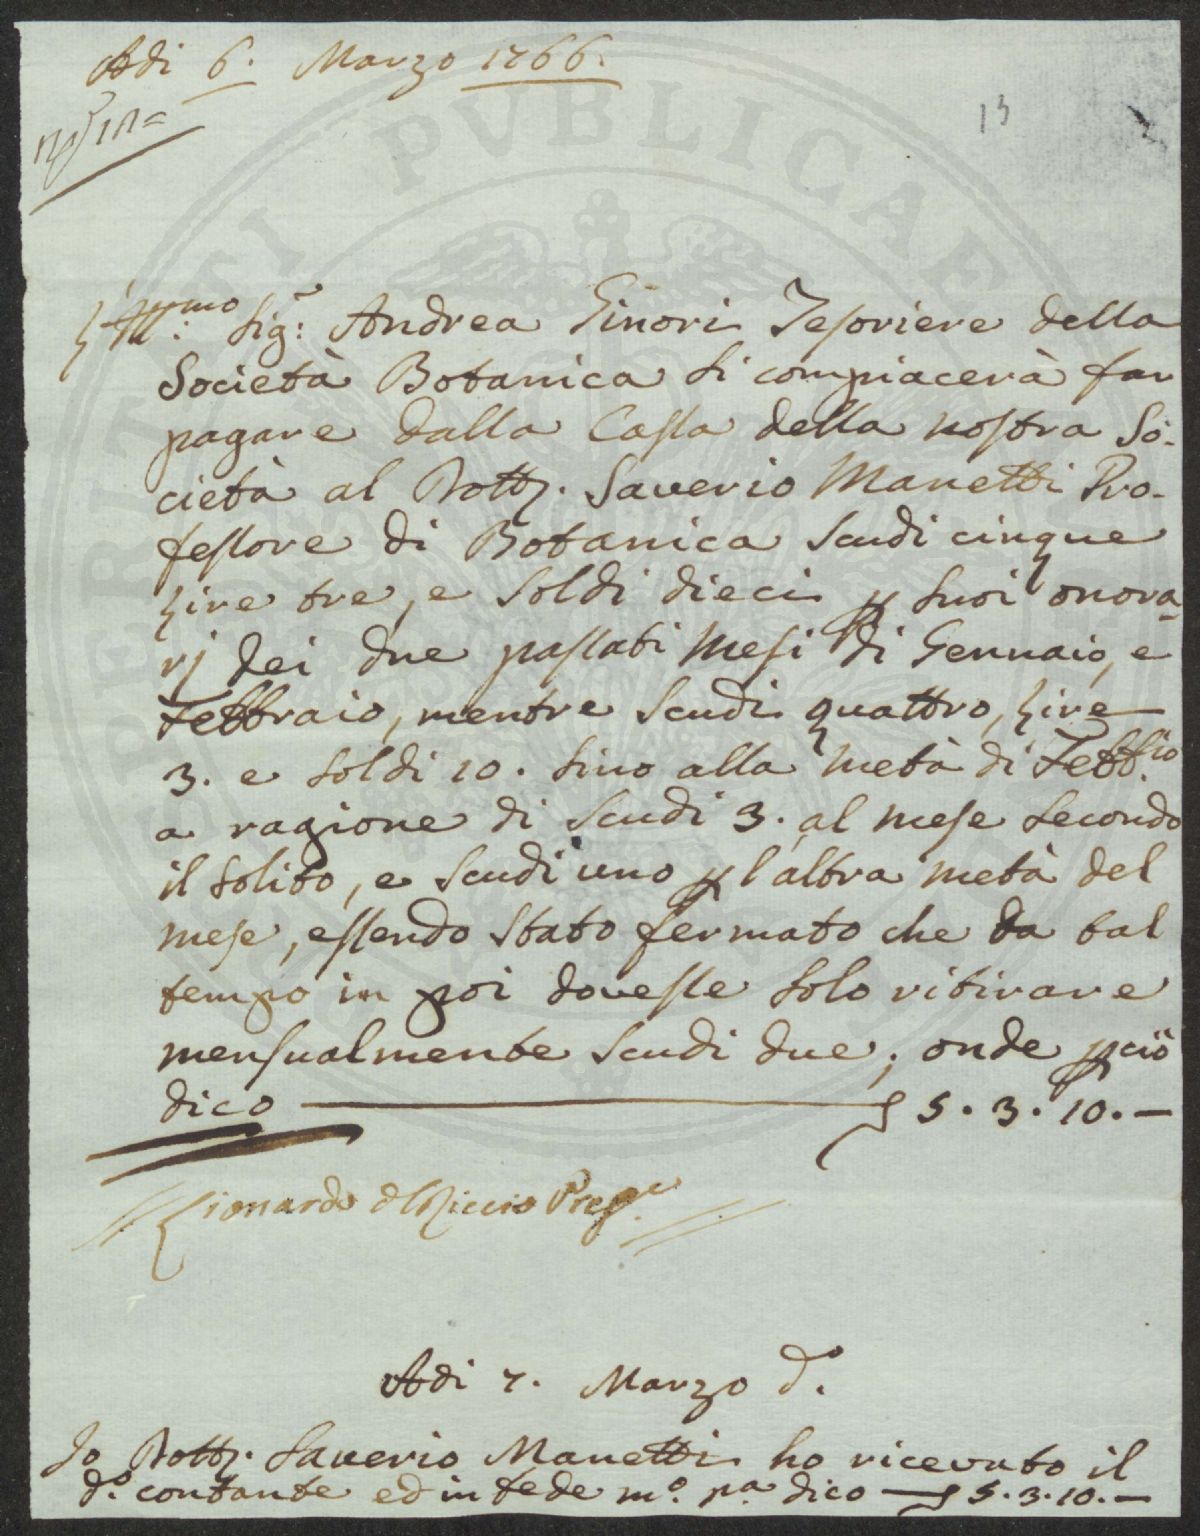 Adi 6. Marzo 1766.
13
L'Ill:mo Sig.r Andrea Ginori Tesoriere della
Società Botanica si compiacerà far
pagare dalla Cassa della nostra So-
cietà al Dott. Saverio Manetti Pro-
fessore di Botanica scudi cinque
lire tre, e soldi dieci p suoi onora-
rj dei due passati Mesi di Gennaio, e
Febbraio, mentre scudi quattro, lire
3. e soldi 10. sino alla metà di Febb.io
a ragione di scudi 3. al mese secondo
il solito, e scudi uno p l'altra metà del
mese, essendo stato fermato che da tal
tempo in poi dovesse solo ritirare
mensualmente scudi due; onde p ciò
dico 5. 3. 10. —
Lionardo del Riccio Presi.e
Adi 7. Marzo d.o
Io Dott. Saverio Manetti ho ricevuto il
d.o contante ed in fede m.o p.a dico — 5. 3. 10. —
PUBLICAE